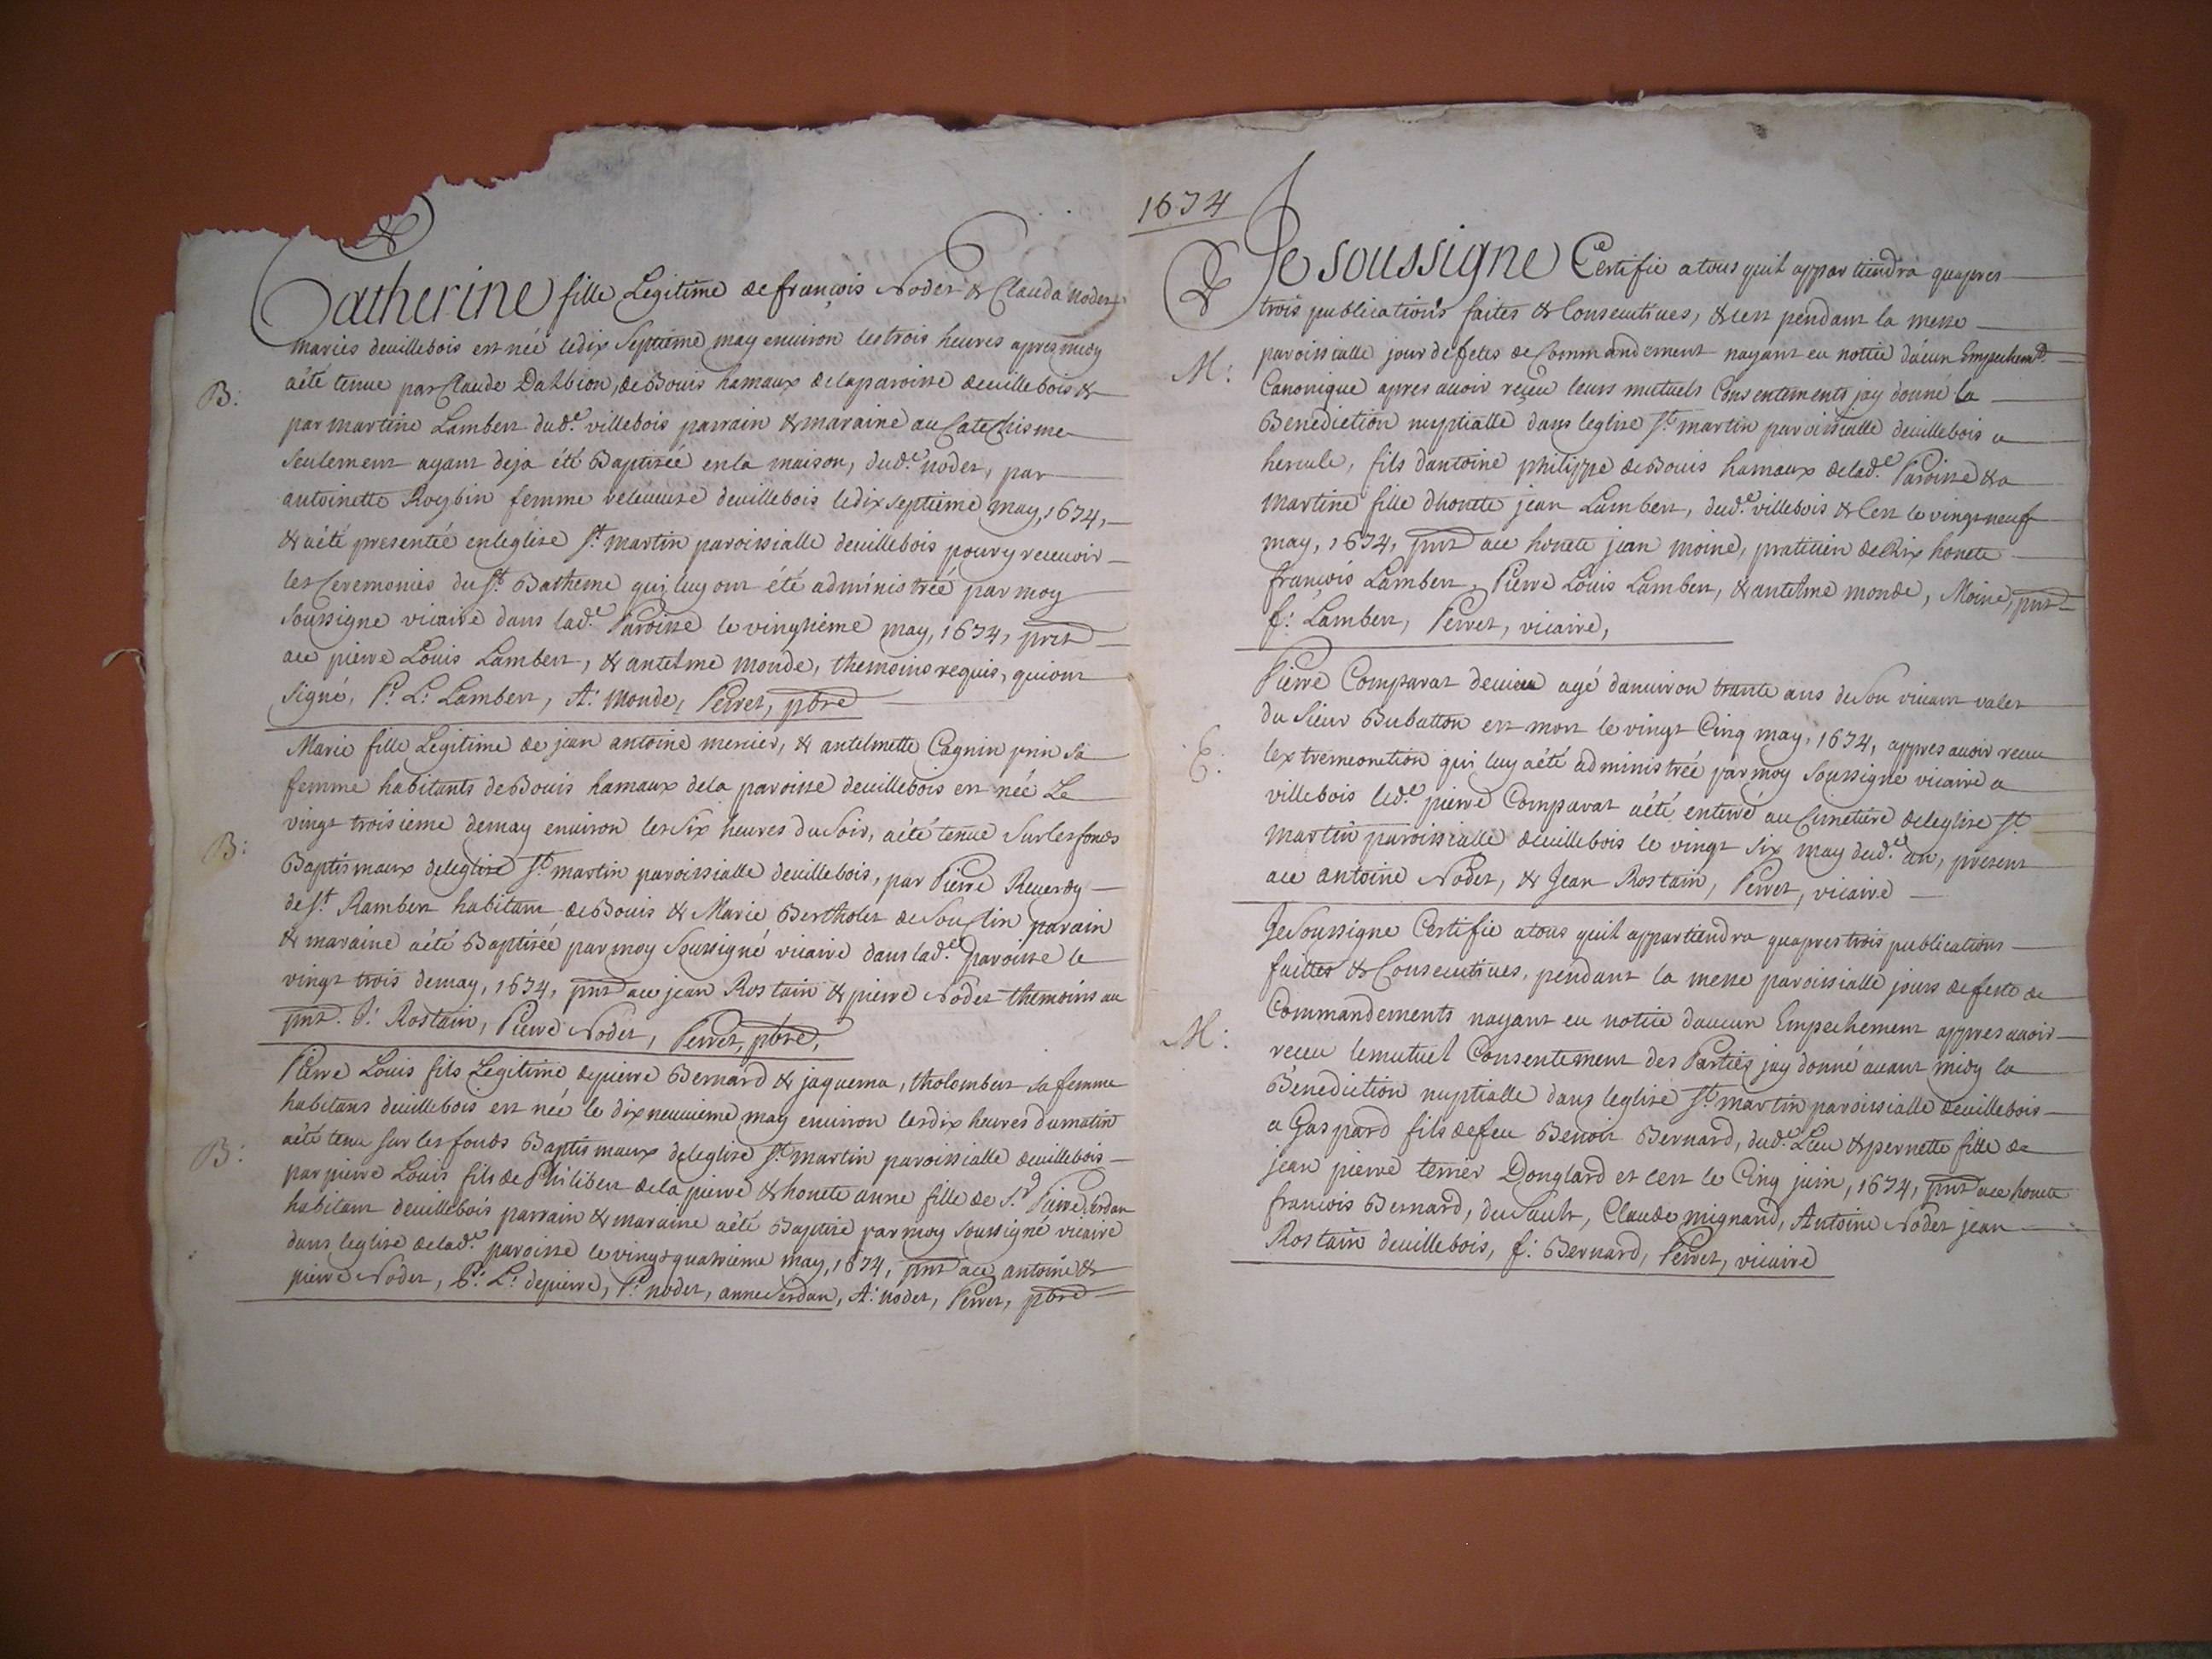 Catherine fille Legitime de françois Nodet & Clauda nodet
mariés deuillebois est née ledix Septiéme may enuiron les trois heures apres midy
B: aété tenue par Claude Dalbion, de Bouis hamaux delaparoisse deuillebois &
par martine Lambert dud.e villebois parrain & maraine au Catechisme
Seulement ayant deja été Baptiséé enla maison, dud.e nodet, par
antoinette Roybin femme releueuse deuillebois ledix septieme may, 1674,
& aété presentéé enleglise St martin paroissialle deuillebois pour y receuoir
les Ceremonies du St Batheme qui luy ont été administréé par moy
Soussigne vicaire dans lad.e Paroisse le vingtiéme may, 1674, pnt
aec pierre Louis Lambert, & antelme monde, themoins requis, qui ont
Signé, P: L: Lambert, A: monde, Perret, pbre
Marie fille Legitime de jean antoine mercier, & antelmette Cagnin prin sa
femme habitants de Bouis hamaux dela paroisse deuillebois est néé Le
vingt troisieme demay enuiron les Six heures du Soir, aété tenue Sur les fonds
B: Baptismaux deleglise St martin paroissialle deuillebois, par Pierre Reuerdy
de St Rambert habitant de Bouis & Marie Bertholet de Souclin parain
& maraine aété Baptiséé par moy Soussigné vicaire dans lad.e paroisse le
vingt trois demay, 1674, pnt aec jean Rostain & pierre Nodet themoins au
pnt. J: Rostain, Pierre Nodet, Perret, pbre,
Pierre Louis fils Legitime depierre Bernard & jaquema, tholombert sa femme
habitans deuillebois est née le dixneuuieme may enuiron lesdix heures dumatin
aété tenu sur les fonds Baptismaux deleglise St martin paroissialle deuillebois
B: par pierre Louis fils de Philibert dela pierre & honete anne fille de Sr Pierre Serdan
habitant deuillebois parrain & maraine aété Baptisé par moy soussigné vicaire
dans leglise delad.e paroisse le vingtquatrieme may, 1674, pnt aec antoine &
pierre Nodet, P: L: depierre, P: nodet, anne Serdan, A: nodet, Perret, pbre
1674
Je soussigne Certifie atous quil appartiendra quapres
trois publications faites & Consecutiues, & cest pendant la messe
M: paroissialle jour defetes de Commandement nayant eu nottie daucun Empechemt
Canonique apres auoir reçeu leurs mutuels Consentements jay donné la
Benediction nuptialle dans leglise St martin paroissialle deuillebois a
hercule, fils dantoine philippe de Bouis hamaux delad.e Paroisse & a
martine fille dhonete jean Lambert, dud.e villebois & Cest le vingtneuf
may, 1674, pnt aec honete jean moine, praticien de Rix honete
françois Lambert, Pierre Louis Lambert, & antelme monde, Moine, pnt
f: Lambert, Perret, vicaire,
Pierre Comparat agé danuiron trante ans de Son viuant valet
du Sieur Bubatton est mort le vingt Cinq may, 1674, appres auoir receu
E: lextremeonction qui luy aété administréé par moy Soussigné vicaire a
villebois led.e pierre Comparat aété enterré au Cimetiere deleglise St
martin paroissialle deuillebois le vingt six may dud.e an, present
aec antoine Nodet, & Jean Rostain, Perret, vicaire
Je Soussigne Certifie atous quil appartiendra quapres trois publications
faittes & Consecutiues, pendant la messe paroissialle jours defeste de
Commandements nayant eu nottie daucun Empechement appres auoir
M: receu lemutuel Consentement des Parties jay donné auant midy la
Benediction nuptialle dans leglise St martin paroissialle deuillebois
a Gaspard fils defeu Benoit Bernard, dud.e Lieu & pernette fille de
jean pierre terrier Donglard et cest le Cinq juin, 1674, pnt aec honete
francois Bernard, du Sault, Claude mignard, Antoine Nodet jean
Rostain deuillebois, f: Bernard, Perret, vicaire